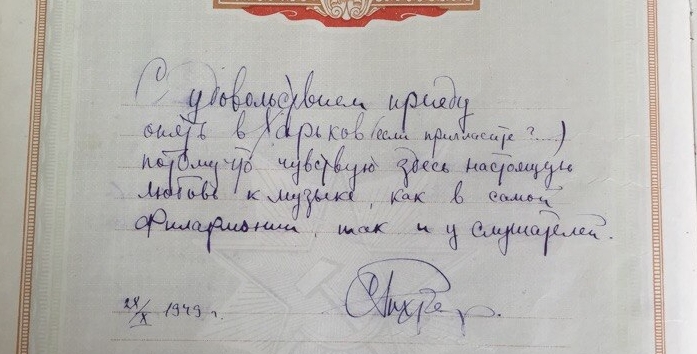 С удовольствием приеду
опять в Харьков (если пригласите?...)
потому-что чувствую здесь настоящую
любовь к музыке, как в самой
Филармонии, так и у слушателей.
С Рихтер.
28/X 1949 г.